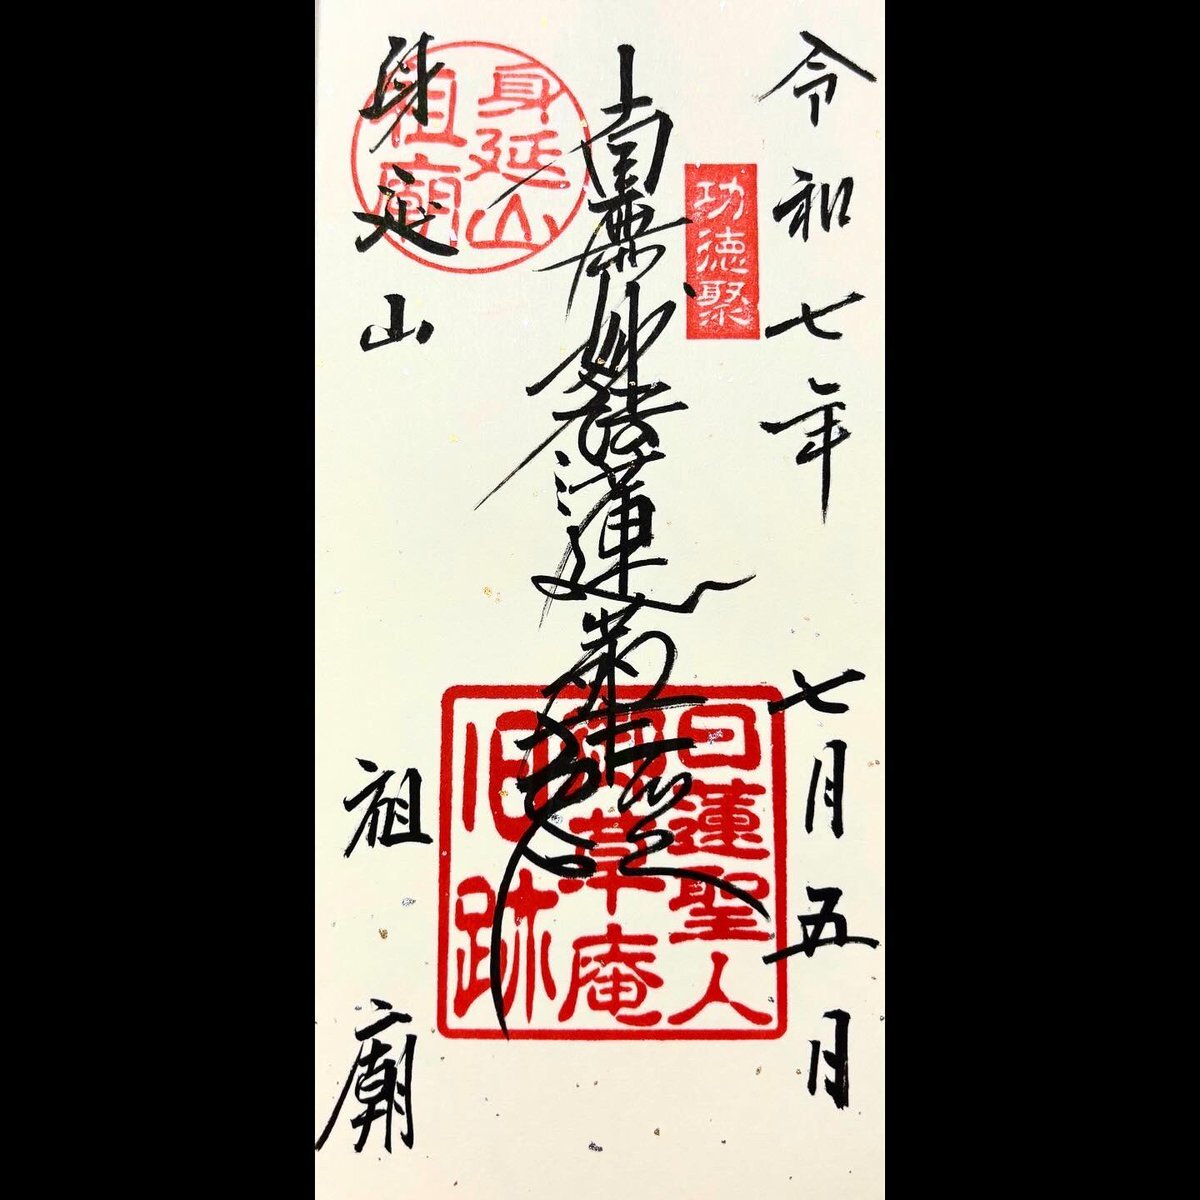 令和七年 七月五日
功徳聚
南無妙法蓮華経
日蓮聖人
御草庵
旧跡
身延山
祖廟
身延山 祖廟